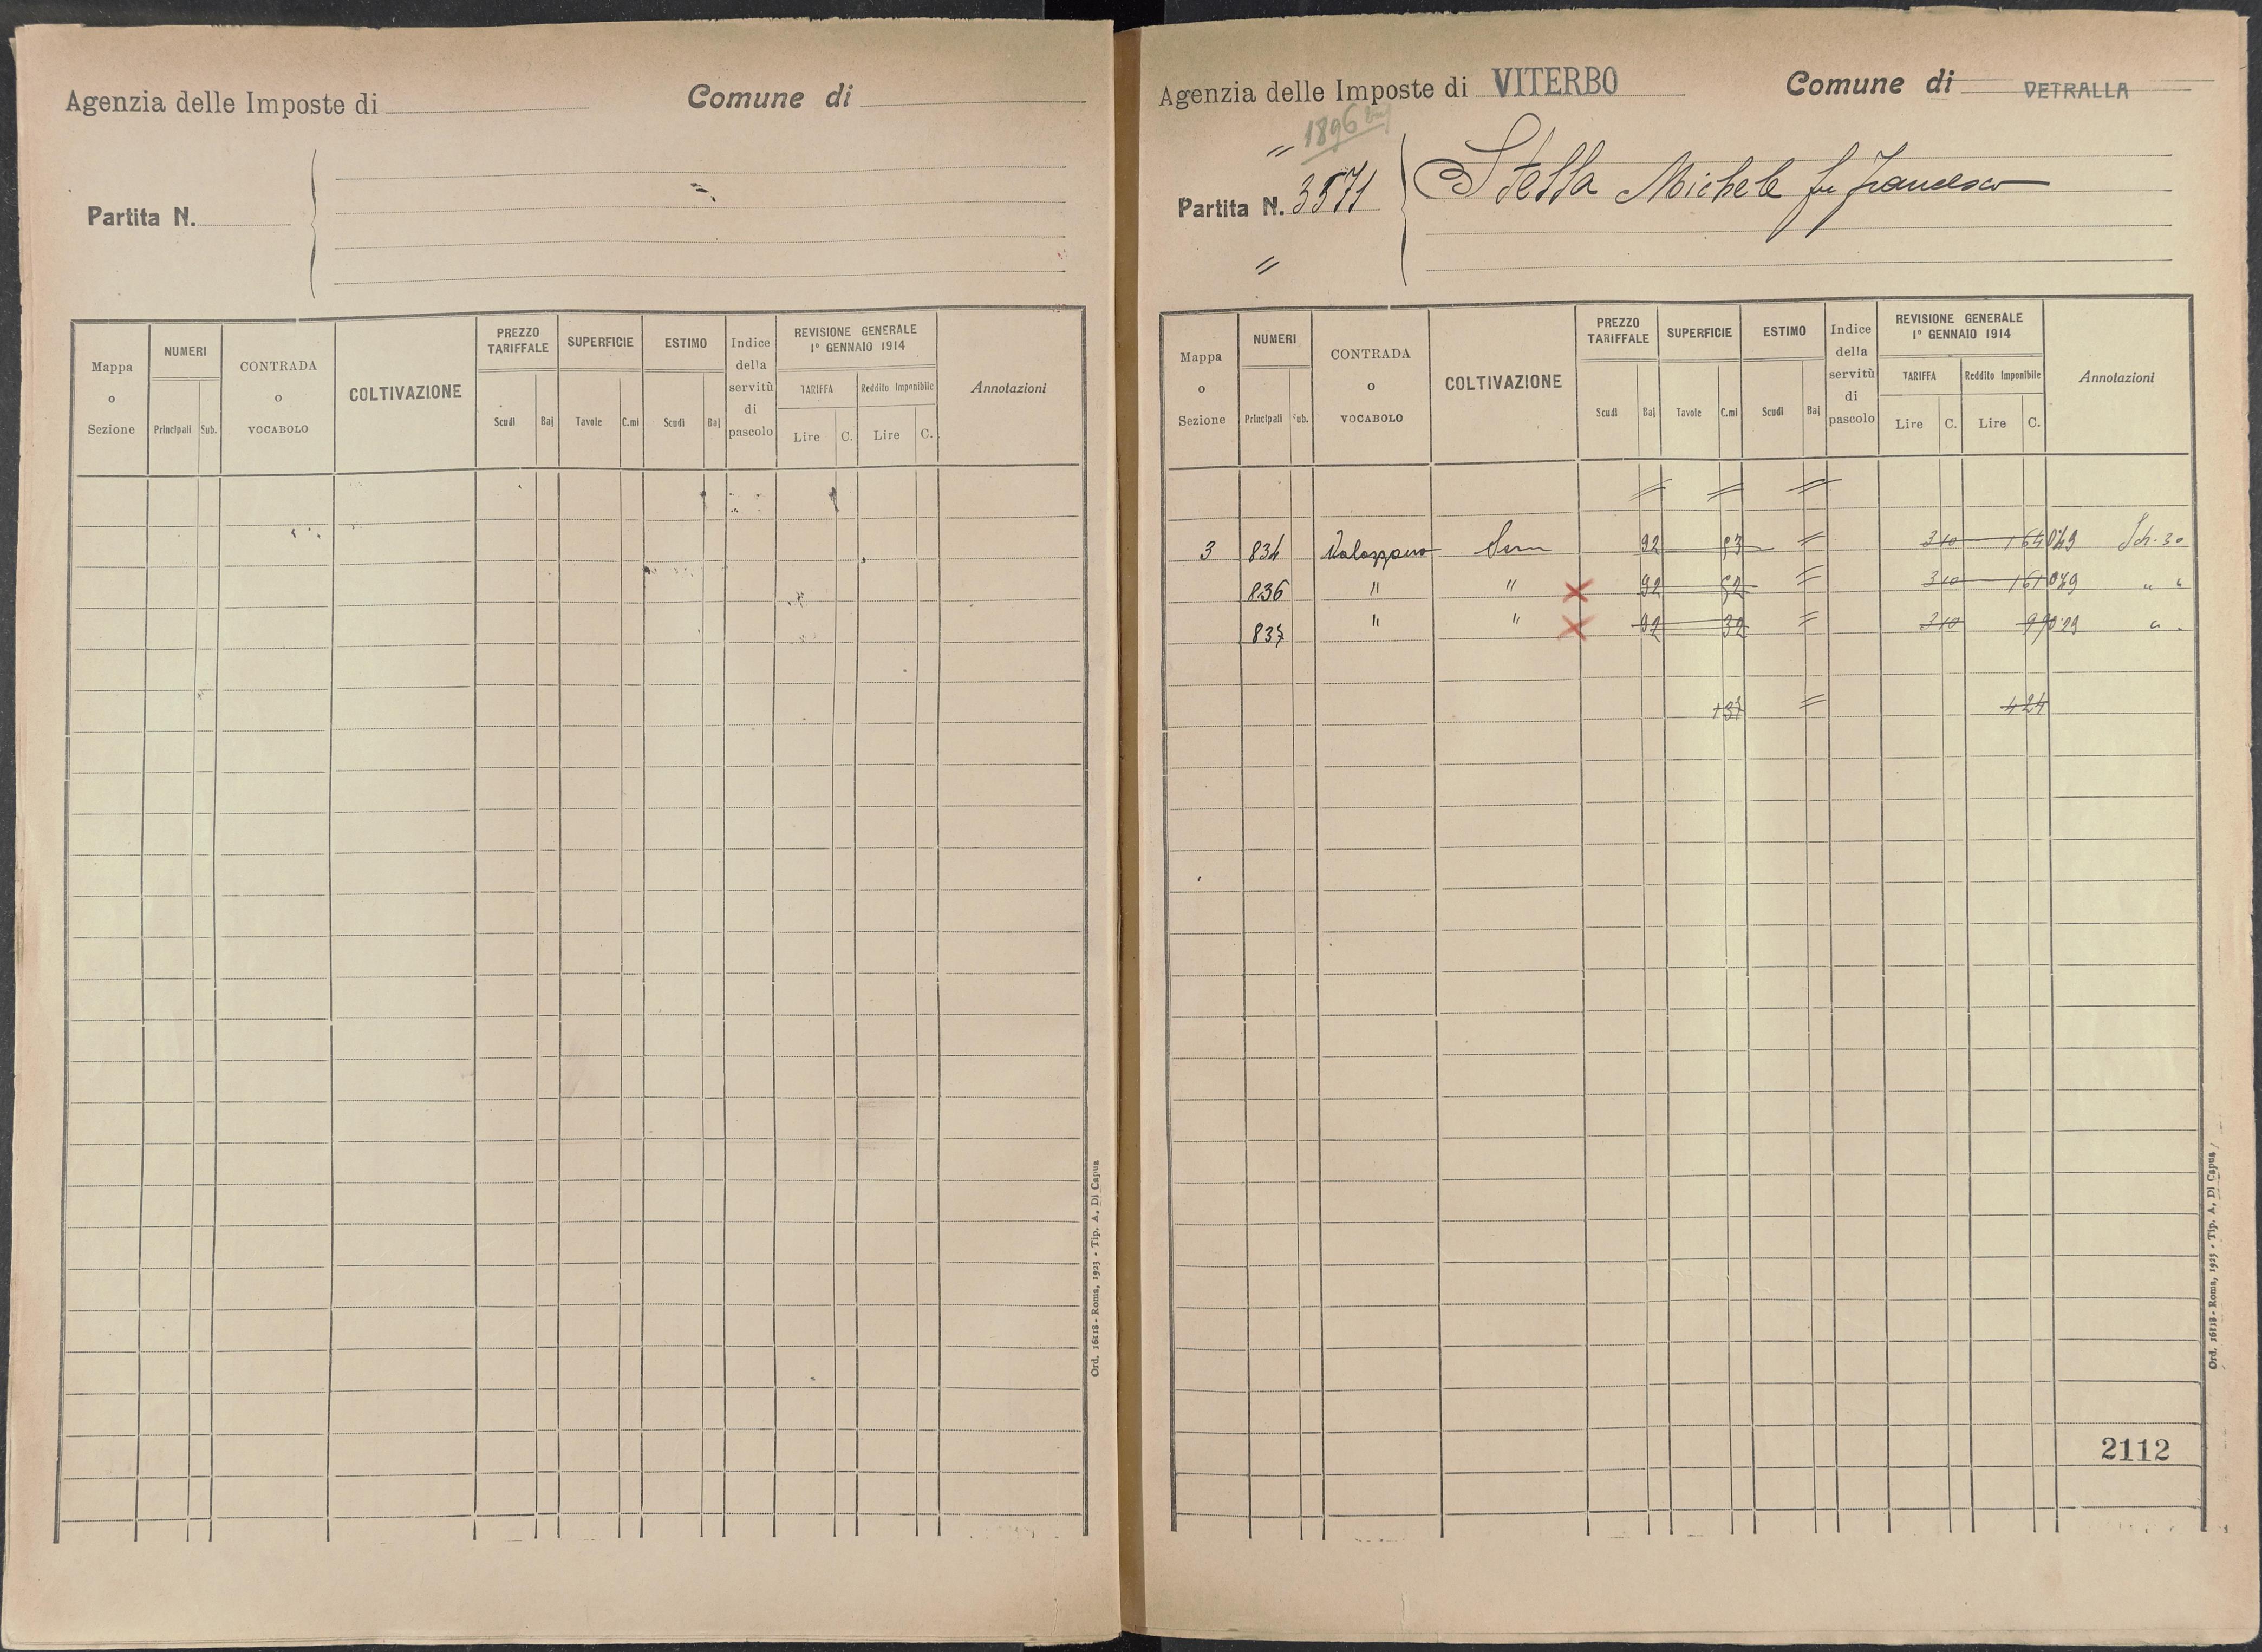 Agenzia delle Imposte di
Comune di
Partita N.
Mappa o Sezione
NUMERI
Principali Sub.
CONTRADA o VOCABOLO
COLTIVAZIONE
PREZZO TARIFFALE
Scudi Baj
SUPERFICIE
Tavole C.mi
ESTIMO
Scudi Baj
Indice della servitù di pascolo
REVISIONE GENERALE
1° GENNAIO 1914
TARIFFA Reddito Imponibile
Lire C. Lire C.
Annotazioni
Ord. 16118 - Roma, 1923 - Tip. A. Di Capua
Agenzia delle Imposte di VITERBO
Comune di VETRALLA
1896
"
Partita N. 3571
Stella Michele fu Francesco
"
Mappa o Sezione
NUMERI
Principali Sub.
CONTRADA o VOCABOLO
COLTIVAZIONE
PREZZO TARIFFALE
Scudi Baj
SUPERFICIE
Tavole C.mi
ESTIMO
Scudi Baj
Indice della servitù di pascolo
REVISIONE GENERALE
1° GENNAIO 1914
TARIFFA Reddito Imponibile
Lire C. Lire C.
Annotazioni
3 834 Sem 92 53 = 3 10 1 64 0.49 Sch. 30
836 " " X 92 52 = 3 10 1 61 " "
837 " " X 92 32 = 3 10 99 0.29 "
1 37 = 4 24
2112
Ord. 16118 - Roma, 1923 - Tip. A. Di Capua